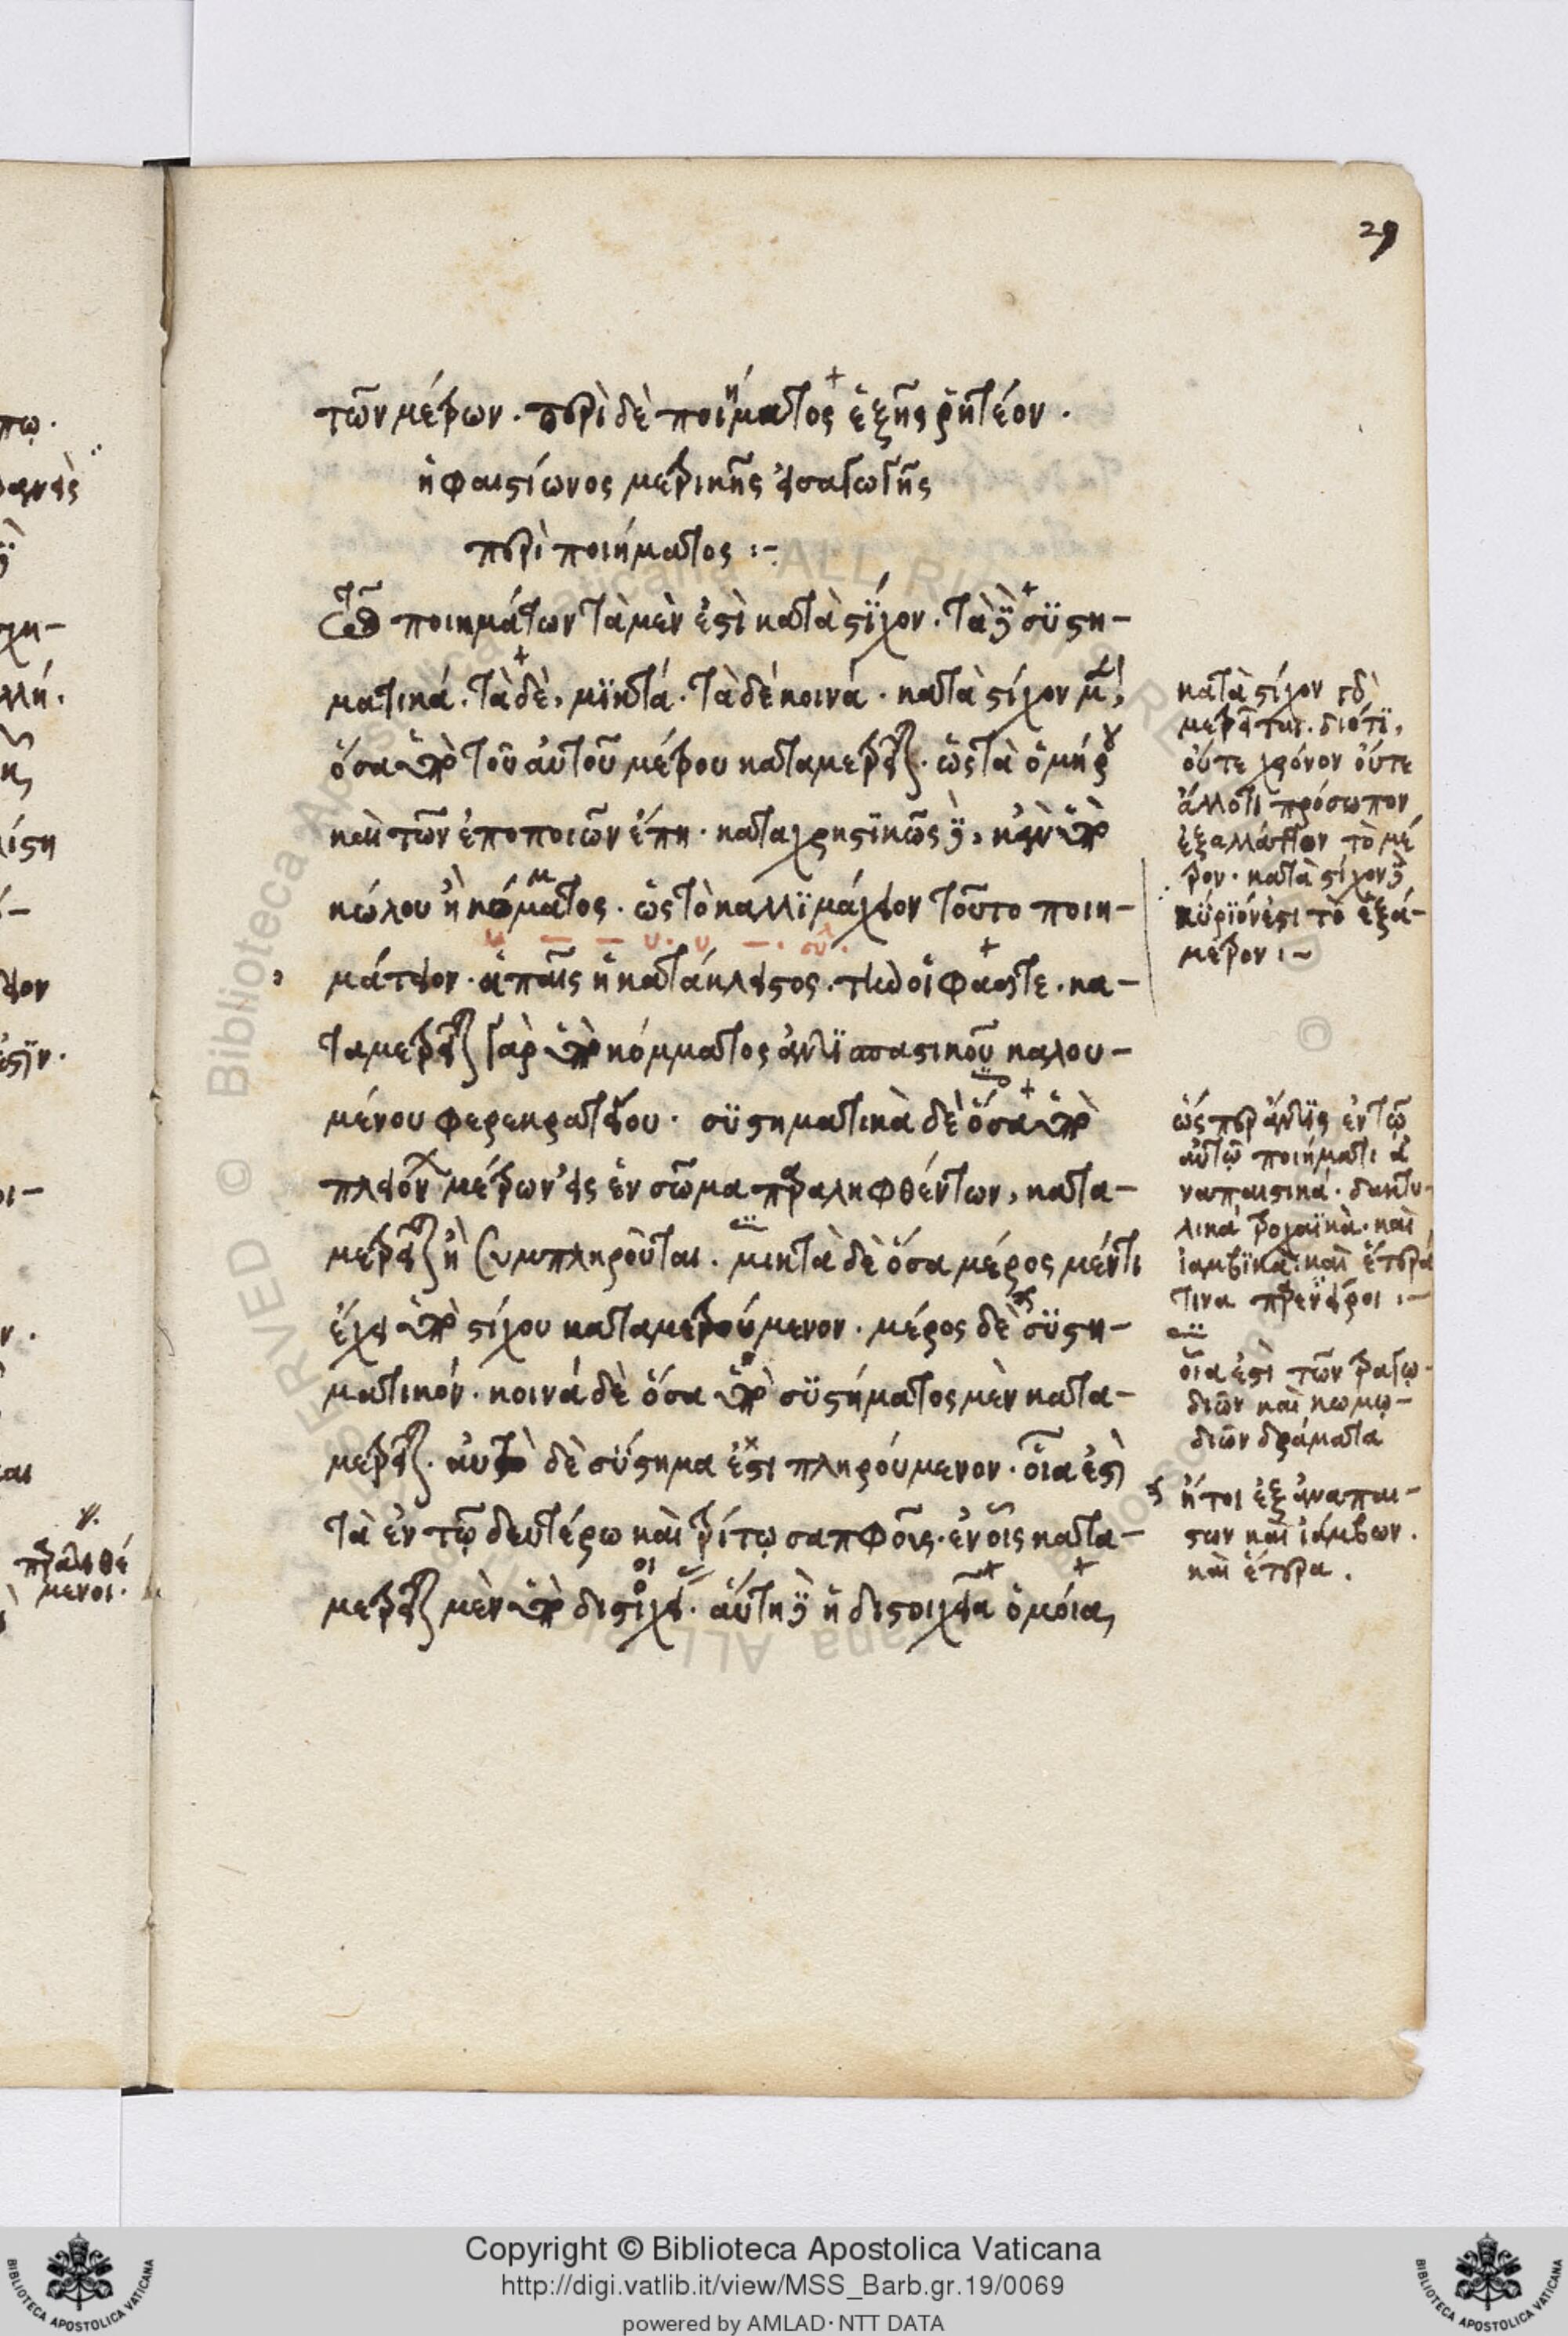 29
τῶν μέτρων. περὶ δὲ ποιήματος ἑξῆς ῥητέον.
ἡφαιστίωνος μετρικῆς εἰσαγωγῆς
περὶ ποιήματος :-
Τῶν ποιημάτων τὰ μὲν ἐστὶ κατὰ στίχον. τὰ δὲ συστη-
ματικά. τὰ δὲ, μικτά. τὰ δὲ κοινά. κατὰ στίχον μὲν,
ὅσα ὑπὸ τοῦ αὐτοῦ μέτρου καταμετρεῖται. ὡς τὰ ὁμήρου
καὶ τῶν ἐποποιῶν ἔπη. καταχρηστικῶς δὲ, κἂν ὑπὸ
κώλου ἢ κόμματος. ὡς τὸ καλλιμάχειον τοῦτο ποιη-
μάτειον. ἡ παῖς ἡ κατάκλειστος. τὴν οἵ φασι τε. κα-
ταμετρεῖται γὰρ ὑπὸ κόμματος ἀντισπαστικοῦ καλου-
μένου φερεκρατείου. συστηματικὰ δὲ ὅσα ὑπὸ
πλειόνων μέτρων εἰς ἓν σῶμα παραληφθέντων, κατα-
μετρεῖται ἢ συμπληροῦται. μικτὰ δὲ ὅσα μέρος μέν τι
ἔχει ὑπὸ στίχου καταμετρούμενον. μέρος δὲ συστη-
ματικόν. κοινὰ δὲ ὅσα ὑπὸ συστήματος μὲν κατα-
μετρεῖται. αὐτὸ δὲ σύστημα ἐστι πληρούμενον. οἷα ἐστὶ
τὰ ἐν τῷ δευτέρω καὶ τρίτῳ σαπφοῦς. ἐν οἷς κατα-
μετρεῖται μὲν ὑπὸ διστιχίας. αὕτη δὲ ἡ διστοιχεία ὁμοία,
κατὰ στίχον
μετρεῖται. διότι,
οὔτε χρόνον οὔτε
ἄλλό τι πρόσωπον
ἐξαλλάττον τὸ μέ
τρον. κατὰ στίχον δὲ
κύριόν ἐστι τὸ ἑξά-
μετρον :~
ὥσπερ ἄν τις ἐν τῷ
αὐτῷ ποιήματι ἀ
ναπαιστικά. δακτυ-
λικά τροχαϊκὰ. καὶ
ἰαμβικὰ καὶ ἕτερά
τινα παρενείροι :-
οἷα ἐστὶ τῶν τραγῳ-
διῶν καὶ κωμῳ-
διῶν δράματα
ἤτοι ἐξ ἀναπαι-
στων καὶ ἰάμβων.
καὶ ἕτερα.
Copyright © Biblioteca Apostolica Vaticana
http://digi.vatlib.it/view/MSS_Barb.gr.19/0069
powered by AMLAD·NTT DATA